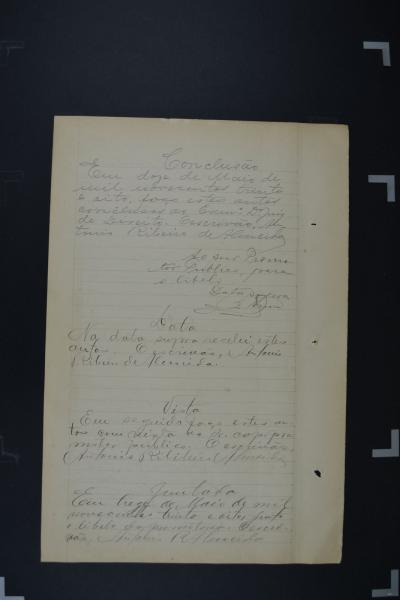 Conclusão
Em doze de Maio de
mil novecentos trinta
e oito, faço estes autos
conclusos ao Exmº Dr Juiz
de Direito. Escrivão, An
tonio Ribeiro de Almeida
Ao snr Promo
tor Publico, para
o libello
Data supra
Data
Na data supra recebi estes
autos. O escrivão, Antonio
Ribeiro de Almeida.
Vista
Em seguida faço estes au
tos com vista ao dr. 
motor publico. O escrivão,
Antonio Ribeiro Almeida
Juntada
Em treze de Maio de mil
novecentos trinta e oito,
o libello da promotoria. O escri
vão, Antonio R. Almeida